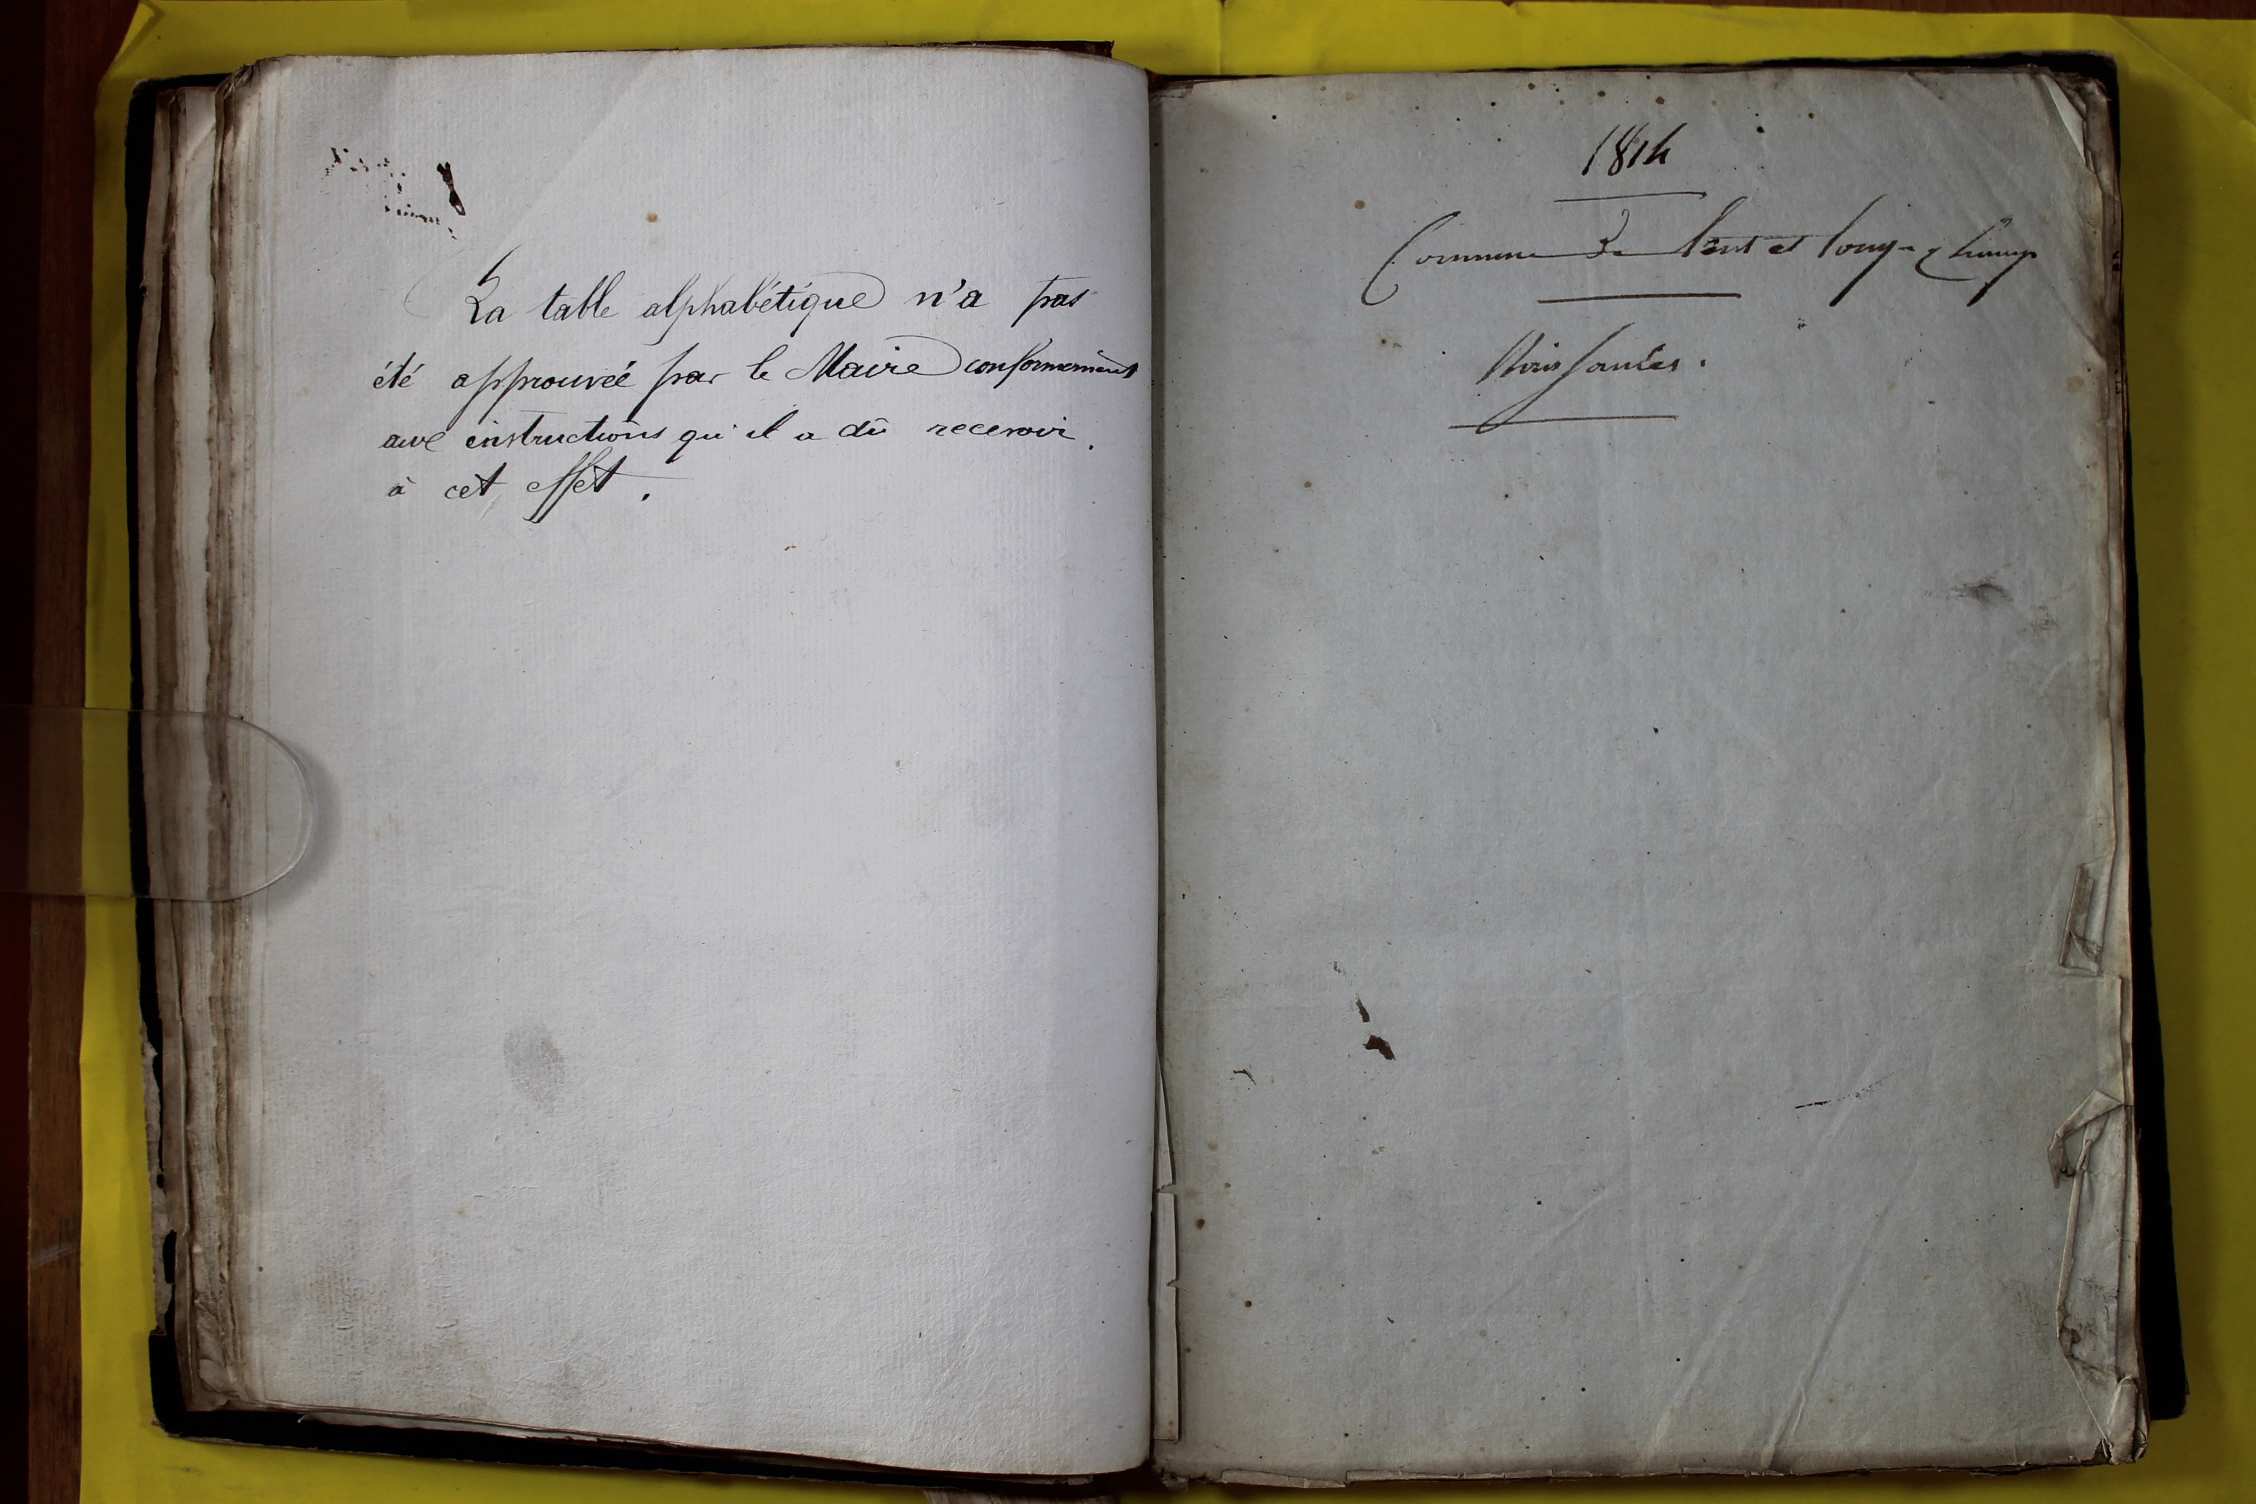 La table alphabétique n'a pas
été approuvée par le Maire conformément
aux instructions qu'il a dû recevoir
à cet effet.
1814
Commune de Lent et Longchamp
Naissances.